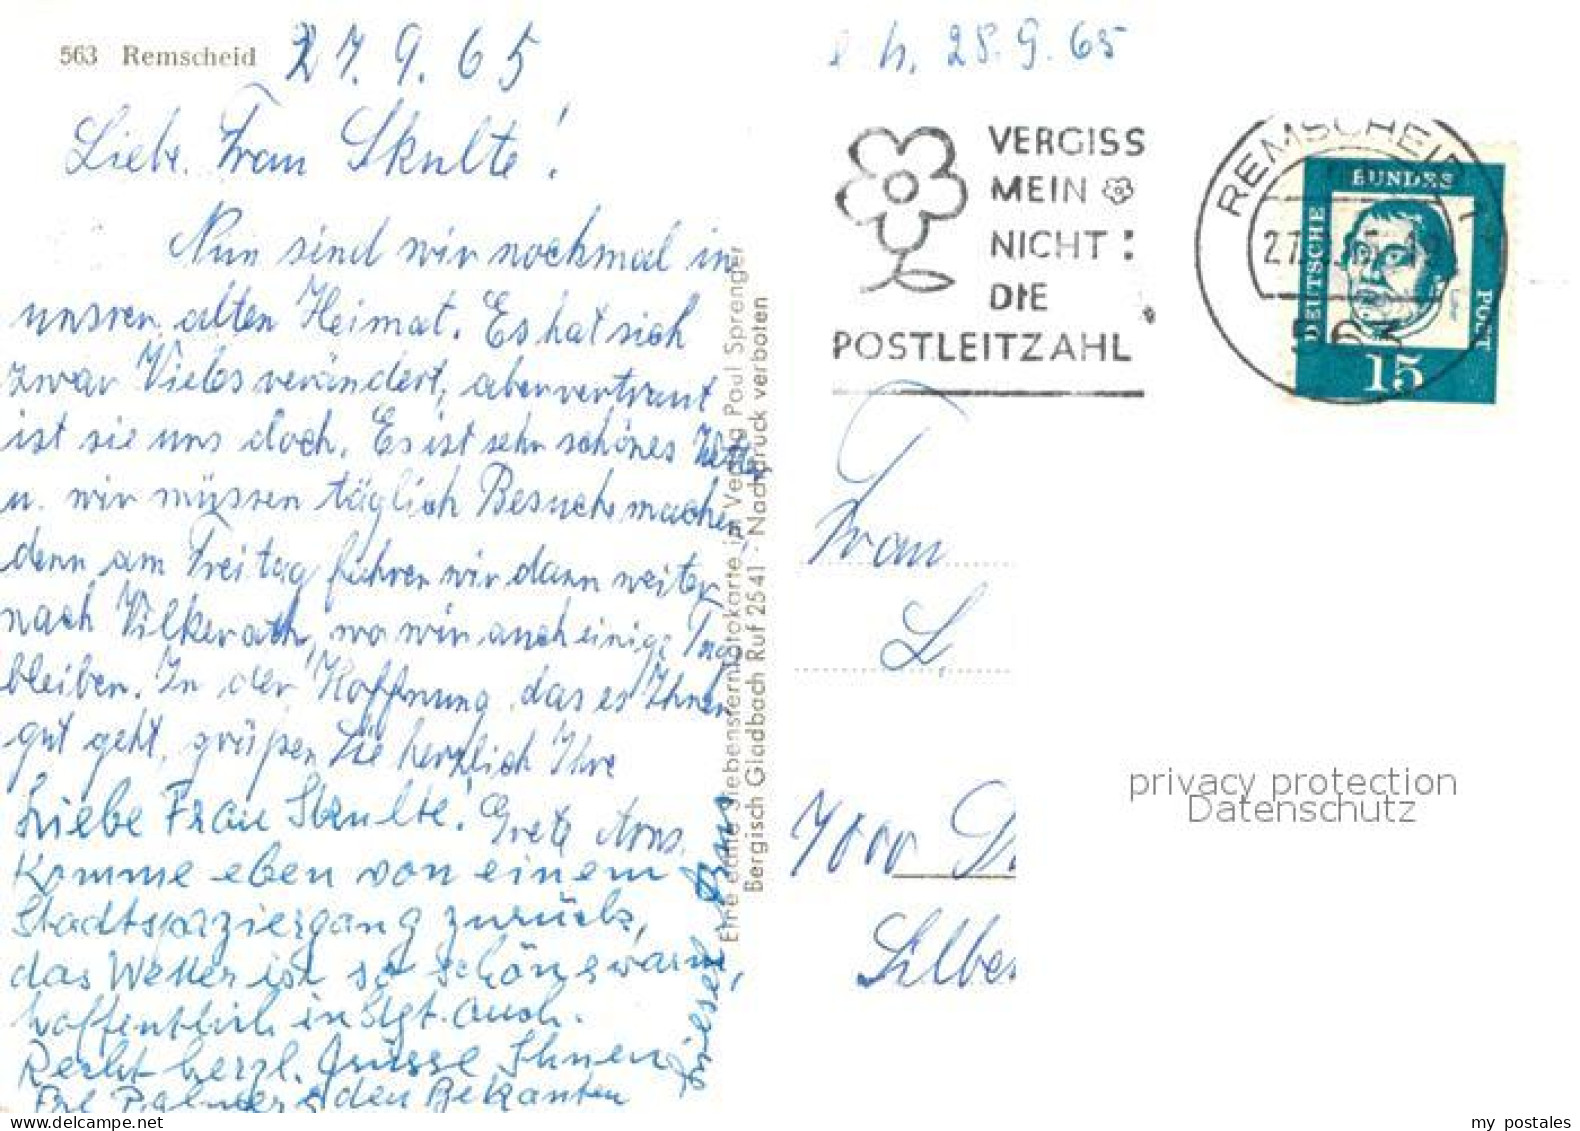 563 Remscheid
27.9.65
Liebe Frau Skulte!
Nun sind wir nochmal in
unsren alten Heimat. Es hat sich
zwar Vieles verändert, aber vertraut
ist sie uns doch. Es ist sehr schönes Wetter
u. wir müssen täglich Besuche machen,
denn am Freitag fahren wir dann weiter
nach Vilkerath, wo wir auch einige Tag
bleiben. In der Hoffnung, das es Ihnen
gut geht, grüßen Sie herzlich Ihre
Grete Arns.
Liebe Frau Skulte!
Komme eben von einem
Stadtspaziergang zurück,
das Wetter ist so schön warm,
hoffentlich in Stgt. auch.
Recht herzl. Grüsse Ihnen
den Bekanten
Arns
Eine echte Siebensternfotokarte im Verlag Paul Sprenger
Bergisch Gladbach Ruf 2541 · Nachdruck verboten
h. 28.9.65
VERGISS
MEIN
NICHT:
DIE
POSTLEITZAHL
REMSCHEID 1
27.
563
DEUTSCHE
BUNDES
POST
15
Frau
L.
7000
Silber
privacy protection
Datenschutz
my postales